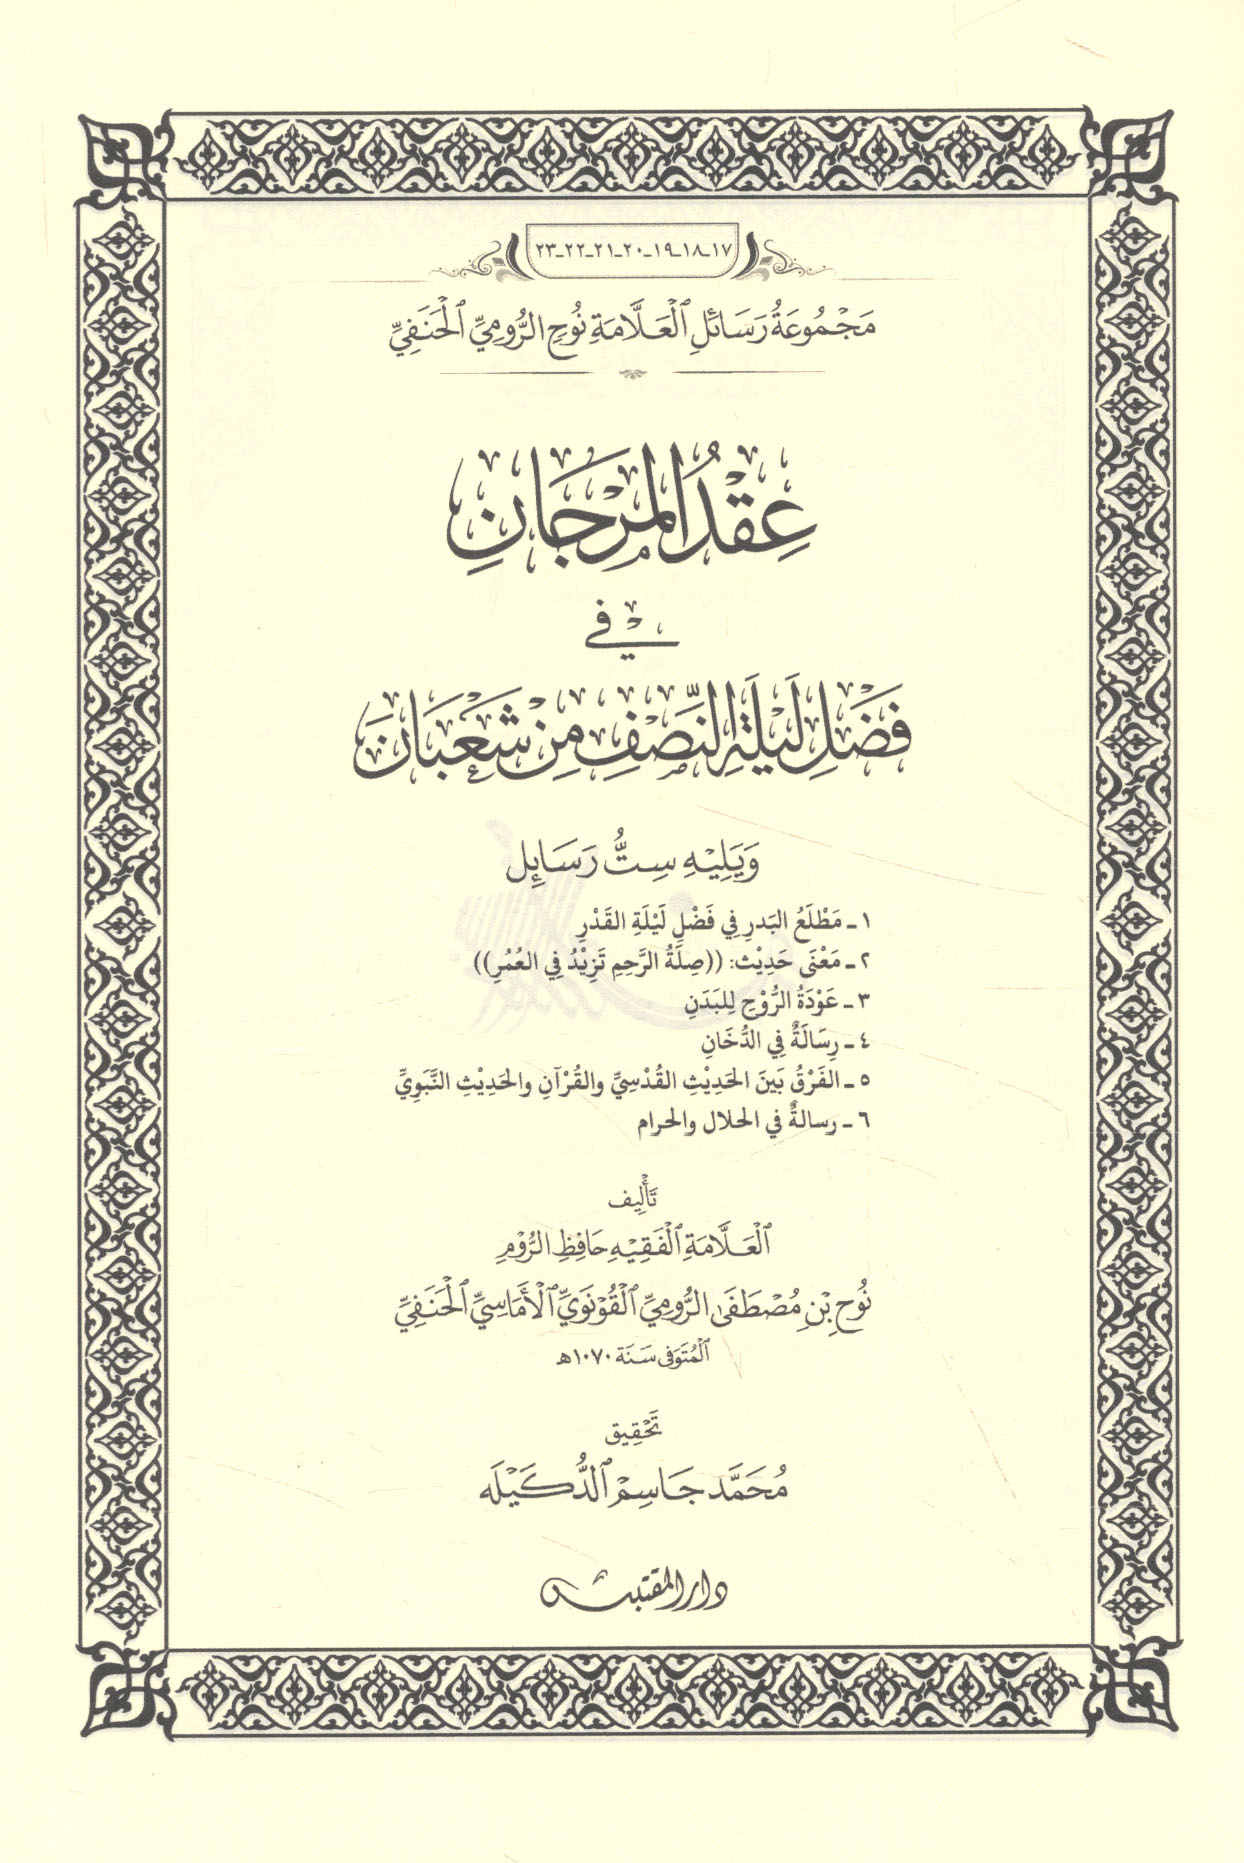 ١٧ـ١٨ـ١٩ـ٢٠ـ٢١ـ٢٢ـ٢٣
مَجْمُوعَةُ رَسَائِلِ ٱلْعَلَّامَةِ نُوحٍ الرُّومِيِّ ٱلْحَنَفِيِّ
عِقْدُ المَرْجَانِ
فِي
فَضْلِ لَيْلَةِ النِّصْفِ مِنْ شَعْبَانَ
وَيَلِيْهِ سِتُّ رَسَائِل
١ ـ مَطْلَعُ البَدرِ فِي فَضْلِ لَيْلَةِ القَدْرِ
٢ ـ مَعْنَى حَدِيْث: ((صِلَةُ الرَّحِمِ تَزِيْدُ فِي العُمُرِ))
٣ ـ عَوْدَةُ الرُّوْحِ لِلبَدَنِ
٤ ـ رِسَالَةٌ فِي الدُّخَانِ
٥ ـ الفَرْقُ بَينَ الحَدِيْثِ القُدْسِيِّ والقُرْآنِ والحَدِيْثِ النَّبَوِيِّ
٦ ـ رسالةٌ في الحلال والحرام
تَأْلِيف
ٱلْعَلَّامَةِ ٱلْفَقِيْهِ حَافِظِ الرُّوْمِ
نُوْحِ بْنِ مُصْطَفَى الرُّومِيِّ ٱلْقُوْنَوِيِّ ٱلْأَمَاسِيِّ ٱلْحَنَفِيِّ
ٱلْمُتَوَفَّى سَنَة ١٠٧٠هـ
تَحْقِيق
مُحَمَّد جَاسِمْ ٱلدُّكَيْلَه
دار المقتبس